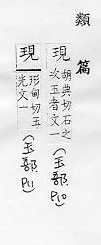 類篇
現 胡典切石之
次玉者文一
(玉部,P10)
現 形甸切玉
光文一
(玉部,P11)